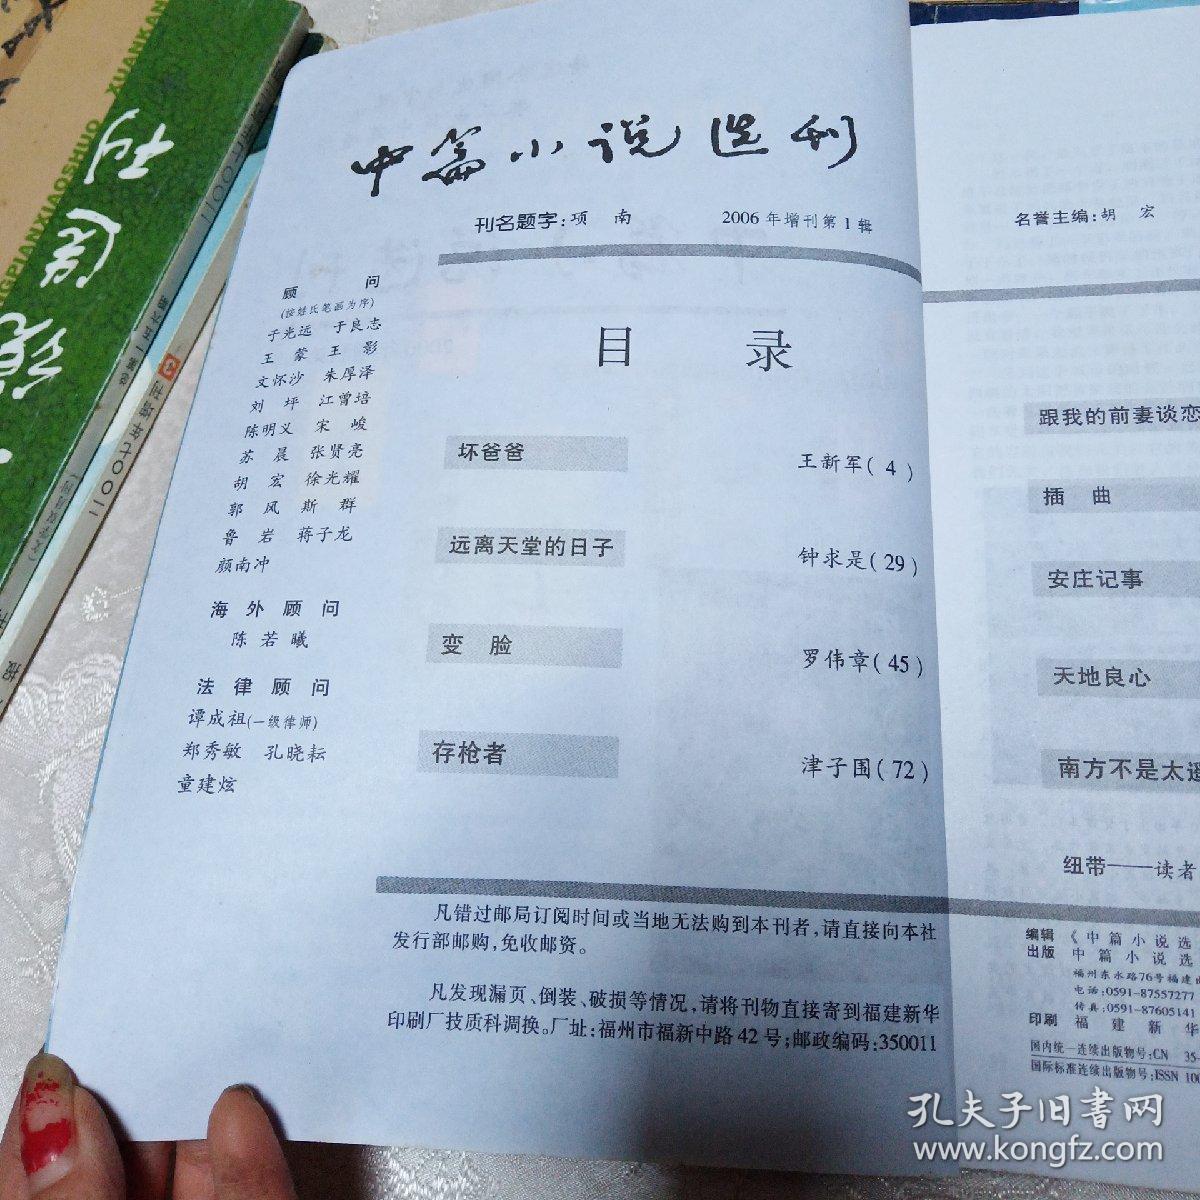 中篇小说选刊
刊名题字：项 南
2006年增刊第1辑
顾 问
(按姓氏笔画为序)
于光远 于良志
王 蒙 王 影
文怀沙 朱厚泽
刘 坪 江曾培
陈明义 宋 峻
苏 晨 张贤亮
胡 宏 徐光耀
郭 风 斯 群
鲁 岩 蒋子龙
颜南冲
海外顾问
陈若曦
法律顾问
谭成祖(一级律师)
郑秀敏 孔晓耘
童建炫
目 录
坏爸爸 王新军(4)
远离天堂的日子 钟求是(29)
变 脸 罗伟章(45)
存枪者 津子围(72)
凡错过邮局订阅时间或当地无法购到本刊者,请直接向本社
发行部邮购,免收邮资。
凡发现漏页、倒装、破损等情况,请将刊物直接寄到福建新华
印刷厂技质科调换。厂址:福州市福新中路42号;邮政编码:350011
名誉主编:胡 宏
跟我的前妻谈恋
插 曲
安庄记事
天地良心
南方不是太遥
纽带——读者
编辑 《中篇小说选
出版 中篇小说选
福州东水路76号福建
电话:0591-87557277
传真:0591-87605141
印刷 福建新华
国内统一连续出版物号:CN 35-
国际标准连续出版物号:ISSN 100
XUANKAN
NGPIANXIAOSHUO
孔夫子旧书网
www.kongfz.com